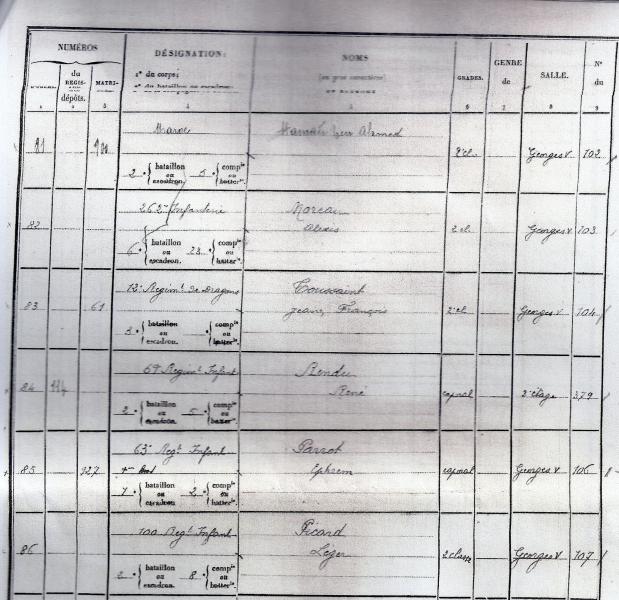 NUMÉROS
du
REGIS-
dépôts.
MATRI-
DÉSIGNATION:
n° du corps;
n° du bataillon ou escadron;
NOMS
(en gros caractères)
GRADES.
GENRE
de
SALLE.
N°
du
1 2 3 4 5 6 7 8 9
81
Maroc
2e bataillon ou escadron. 5e compie ou batterie.
Hamed ben Ahmed
2e cl.
Georges V
102
82
262e Infanterie
6e bataillon ou escadron. 23e compie ou batterie.
Moreau
Alexis
2 cl.
Georges V
103
83
61
12e Regimt de Dragons
3e bataillon ou escadron. compie ou batterie.
Toussaint
Jean, François
2e cl
Georges V
104
84
69 Regimt Infant
2e bataillon ou escadron. 5e compie ou batterie.
Rendu
René
caporal
2e étage
379
85
127
63e Regt Infant
bataillon ou escadron. 2e compie ou batterie.
Parrot
Ephrem
caporal
Georges V
106
86
100 Regt Infant
2e bataillon ou escadron. 8e compie ou batterie.
Picard
Léger
2 classe
Georges V
107